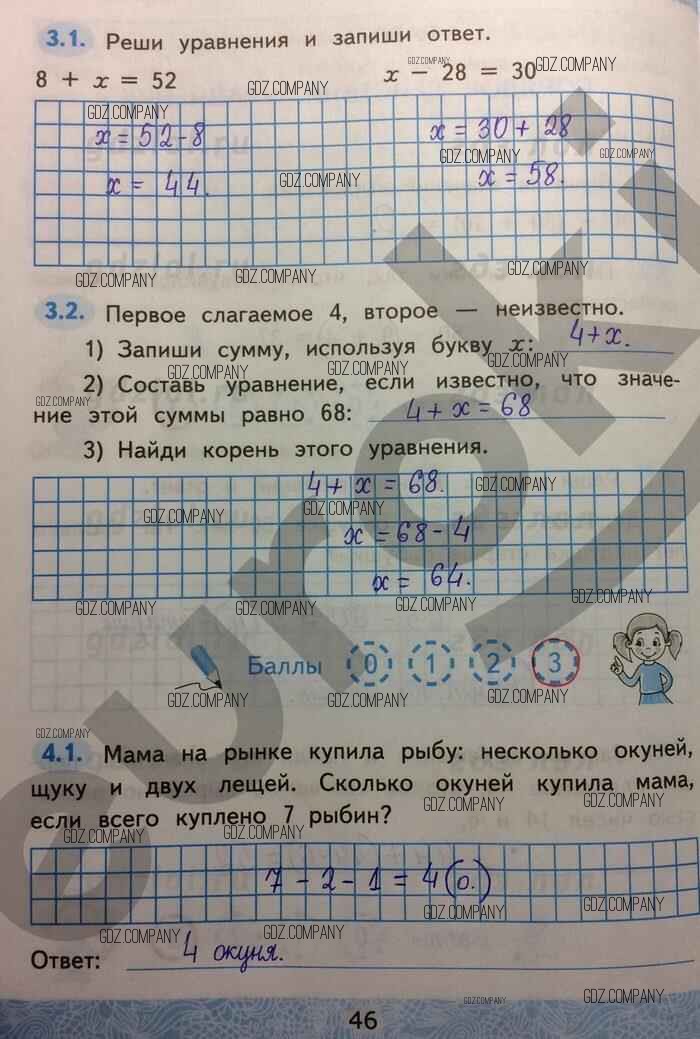 3.1. Реши уравнения и запиши ответ.
8 + x = 52
x − 28 = 30
GDZ.COMPANY
GDZ.COMPANY
GDZ.COMPANY
GDZ.COMPANY
x = 52-8
x = 30 + 28
GDZ.COMPANY
GDZ.COMPANY
x = 44.
GDZ.COMPANY
x = 58.
GDZ.COMPANY
GDZ.COMPANY
GDZ.COMPANY
3.2. Первое слагаемое 4, второе — неизвестно.
1) Запиши сумму, используя букву x: 4+x.
GDZ.COMPANY
GDZ.COMPANY
GDZ.COMPANY
GDZ.COMPANY
2) Составь уравнение, если известно, что значе-
GDZ.COMPANY
ние этой суммы равно 68: 4 + x = 68
3) Найди корень этого уравнения.
4 + x = 68.
GDZ.COMPANY
GDZ.COMPANY
GDZ.COMPANY
x = 68 - 4
x = 64.
GDZ.COMPANY
GDZ.COMPANY
GDZ.COMPANY
GDZ.COMPANY
Баллы 0 1 2 3
GDZ.COMPANY
GDZ.COMPANY
GDZ.COMPANY
GDZ.COMPANY
4.1. Мама на рынке купила рыбу: несколько окуней,
щуку и двух лещей. Сколько окуней купила мама,
GDZ.COMPANY
GDZ.COMPANY
если всего куплено 7 рыбин?
GDZ.COMPANY
GDZ.COMPANY
7 - 2 - 1 = 4 (о.)
GDZ.COMPANY
GDZ.COMPANY
GDZ.COMPANY
GDZ.COMPANY
Ответ: 4 окуня.
GDZ.COMPANY
GDZ.COMPANY
46